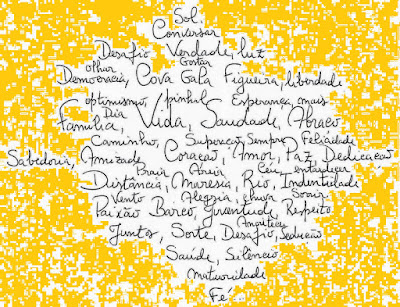 Sol.
Conversar
Desafio Verdade, luz
olhar Gostar
Democracia, Cova Gala Figueira, liberdade
optimismo, pinhal Esperança, mais
Dia
Família, Vida, Saudade, Abraço
Caminho, Superação, Sempre Felicidade
Sabedoria, Amizade, Coração, Amor, Paz, Dedicação
Praia Areia Céu, entardecer
Distância, Maresia, Rio, Indentidade
Vento Alegria, chuva Sorrir,
Paixão Barco, juventude, Respeito
Amanhecer
Juntos, Sorte, Desafio, sedução
Saúde, Silêncio
maturidade
Fé...